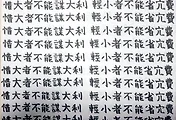 惜大者不能謀大利 輕小者不能省冗費
惜大者不能謀大利 輕小者不能省冗費
惜大者不能謀大利 輕小者不能省冗費
惜大者不能謀大利 輕小者不能省冗費
惜大者不能謀大利 輕小者不能省冗費
惜大者不能謀大利 輕小者不能省冗費